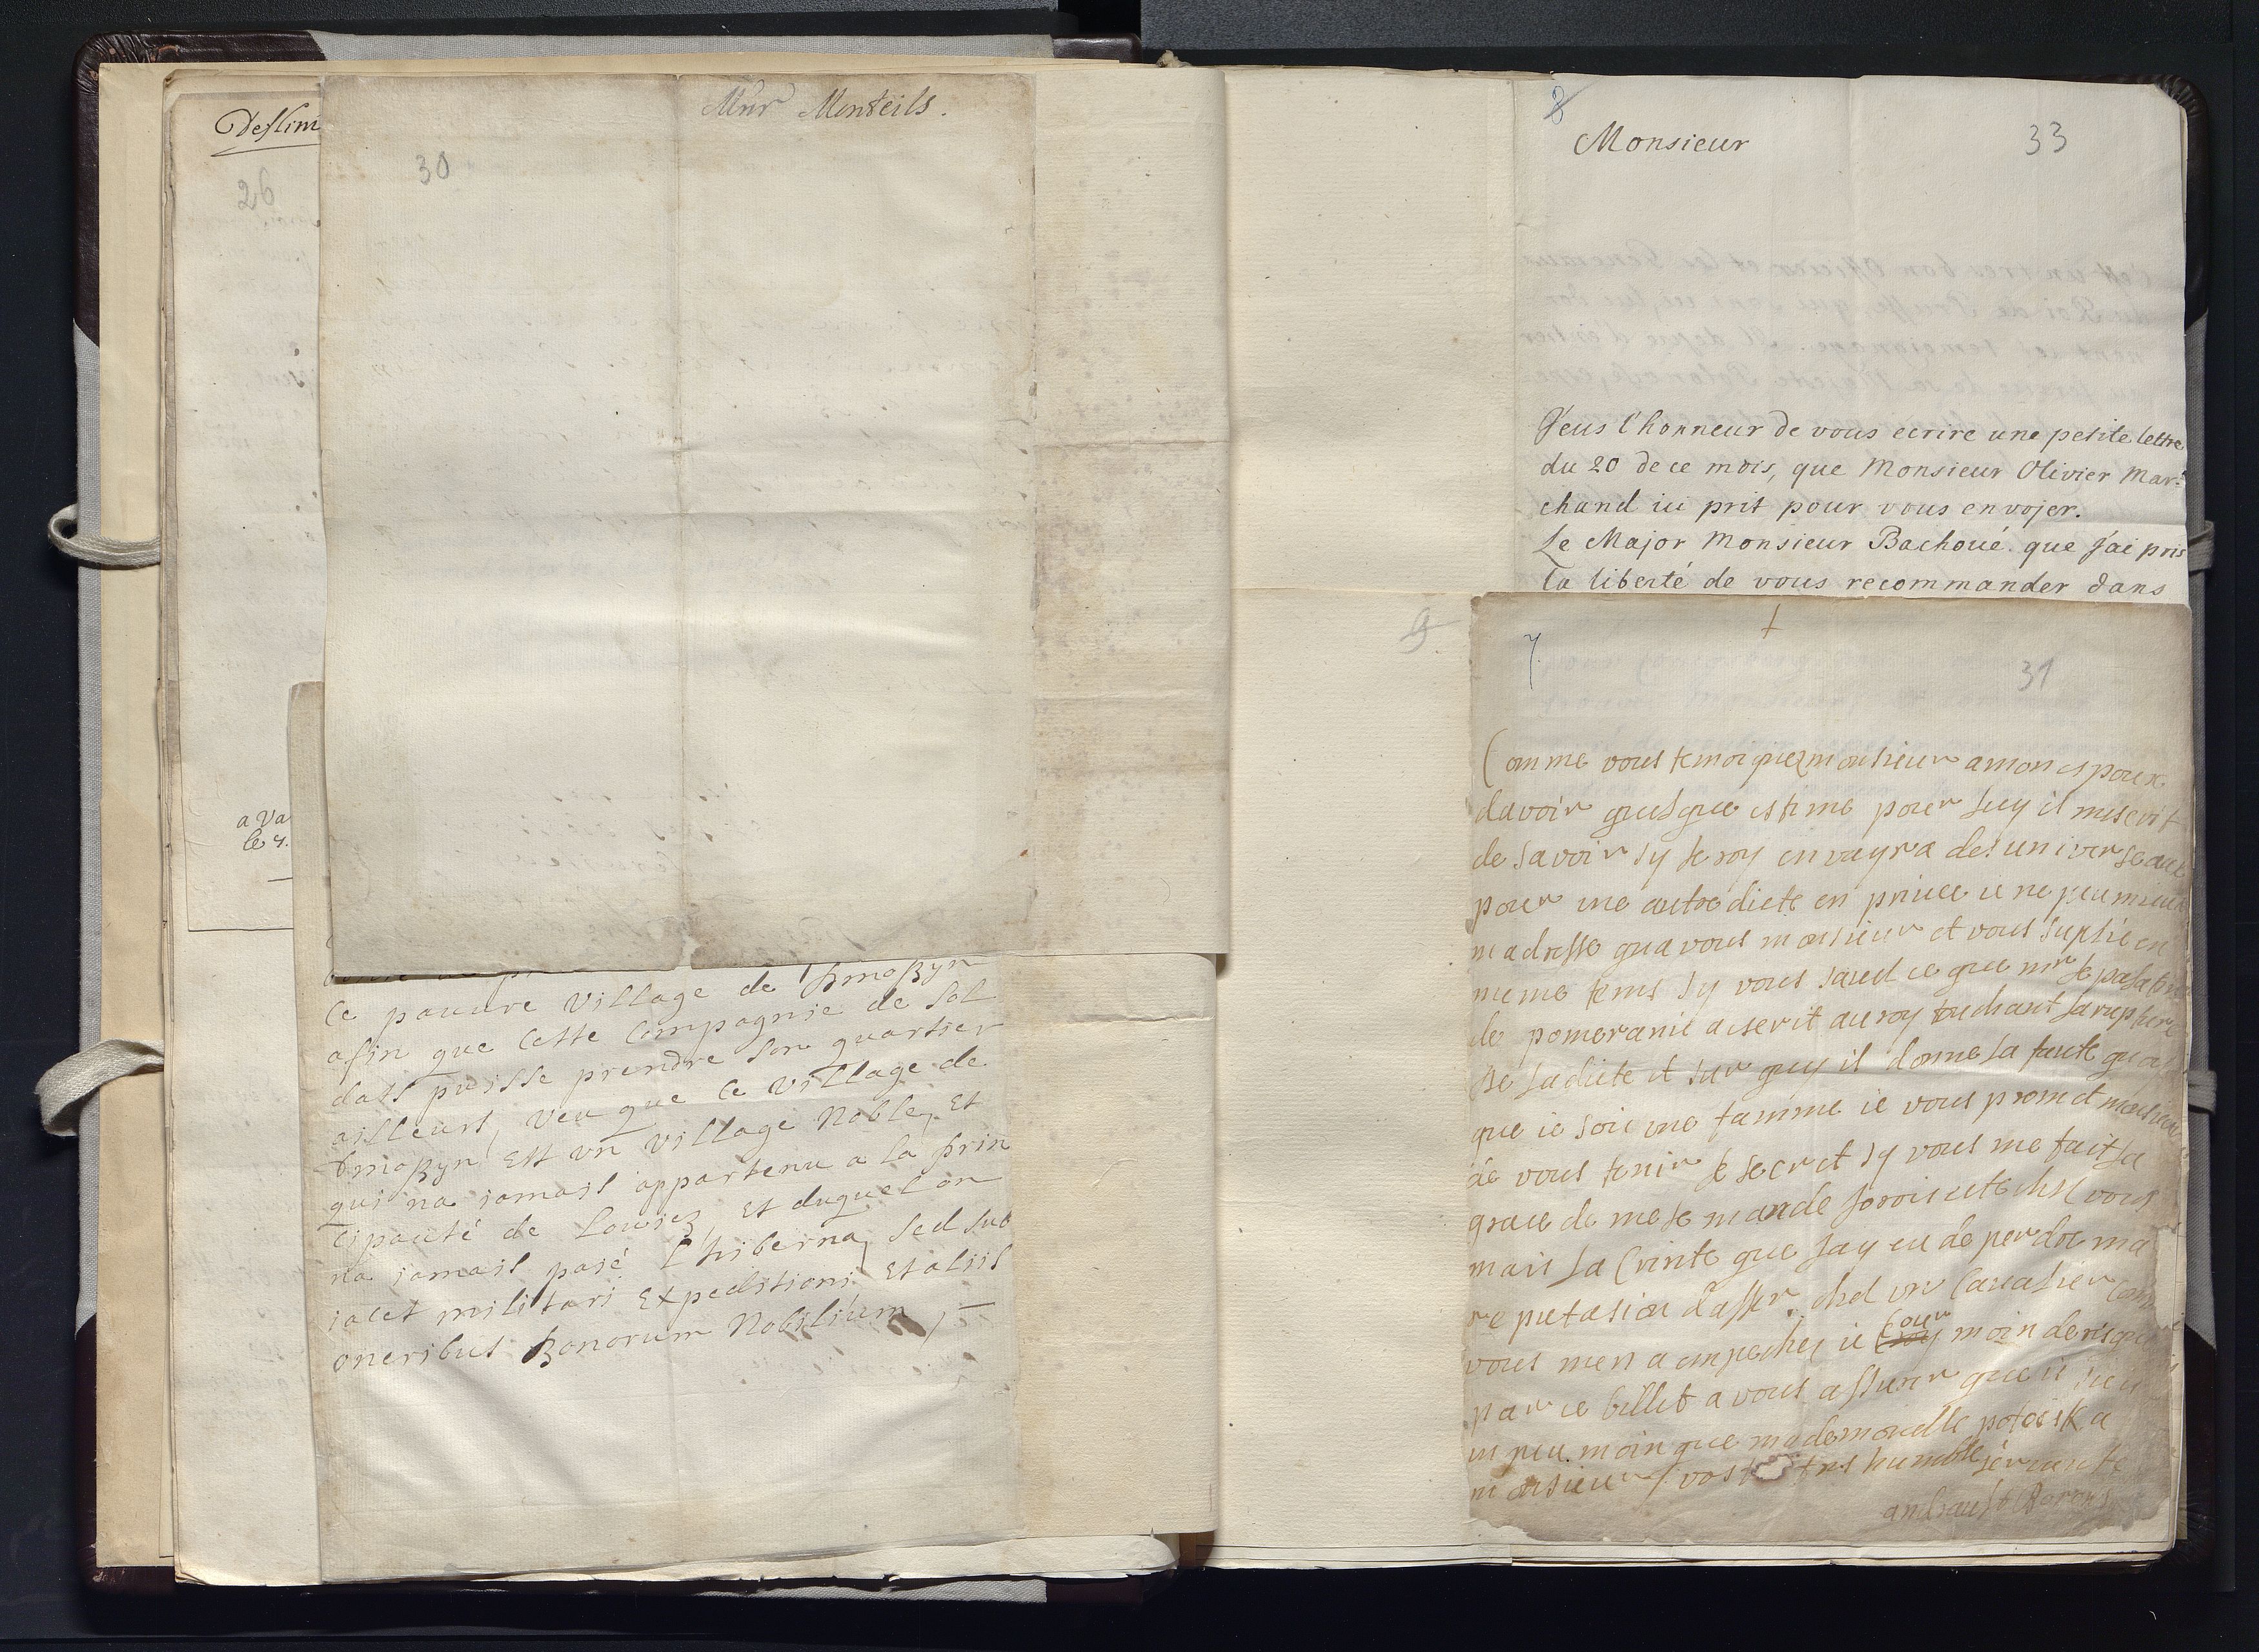 Destim
26
a Va
le 4.
Mnr Monteils.
30
ce pauure village de
afin que cette Compagnie de Sol
dats puisse prendre son quartier
ailleurs, veu que ce village de
est vn village Noble, et
qui na iamais appartenu a la prin
cipauté de et duquel on
na iamais paié l'hiberna, sed sub
iacet militari expeditioni et aliis
oneribus Bonorum Nobilium
8
Monsieur
33
J'eus l'honneur de vous ecrire une petite lettre
du 20 de ce mois, que Monsieur Olivier Mar=
chand ici prit pour vous envojer.
Le Major Monsieur Bachoué que j'ai pris
la liberté de vous recommander dans
9.
7.
31
Comme vous temoignez monsieur a mon espoux
davoir quelque estime pour luy il mescrit
de savoir sy le roy envayra des universeaux
pour une autre diete en ie ne peu mieux
madresse qua vous monsieur et vous suplie en
meme tems sy vous savez ce que mr le palatin
de pomeranie a escrit au roy touchant la rupture
de la diete et sur quy il donne la faute quoy
que ie soie une famme ie vous promet monsieur
de vous tenir le secret sy vous me fait la
grace de me le mande ches vous
mais la Crinte que jay eu de perdre ma
reputasion daller ches un Cavalier com
vous men a empeches ie Cour moin de risque
par ce billet a vous assurer que ie suis
un peu moin que mademoiselle
monsieur vostre tres humble servante